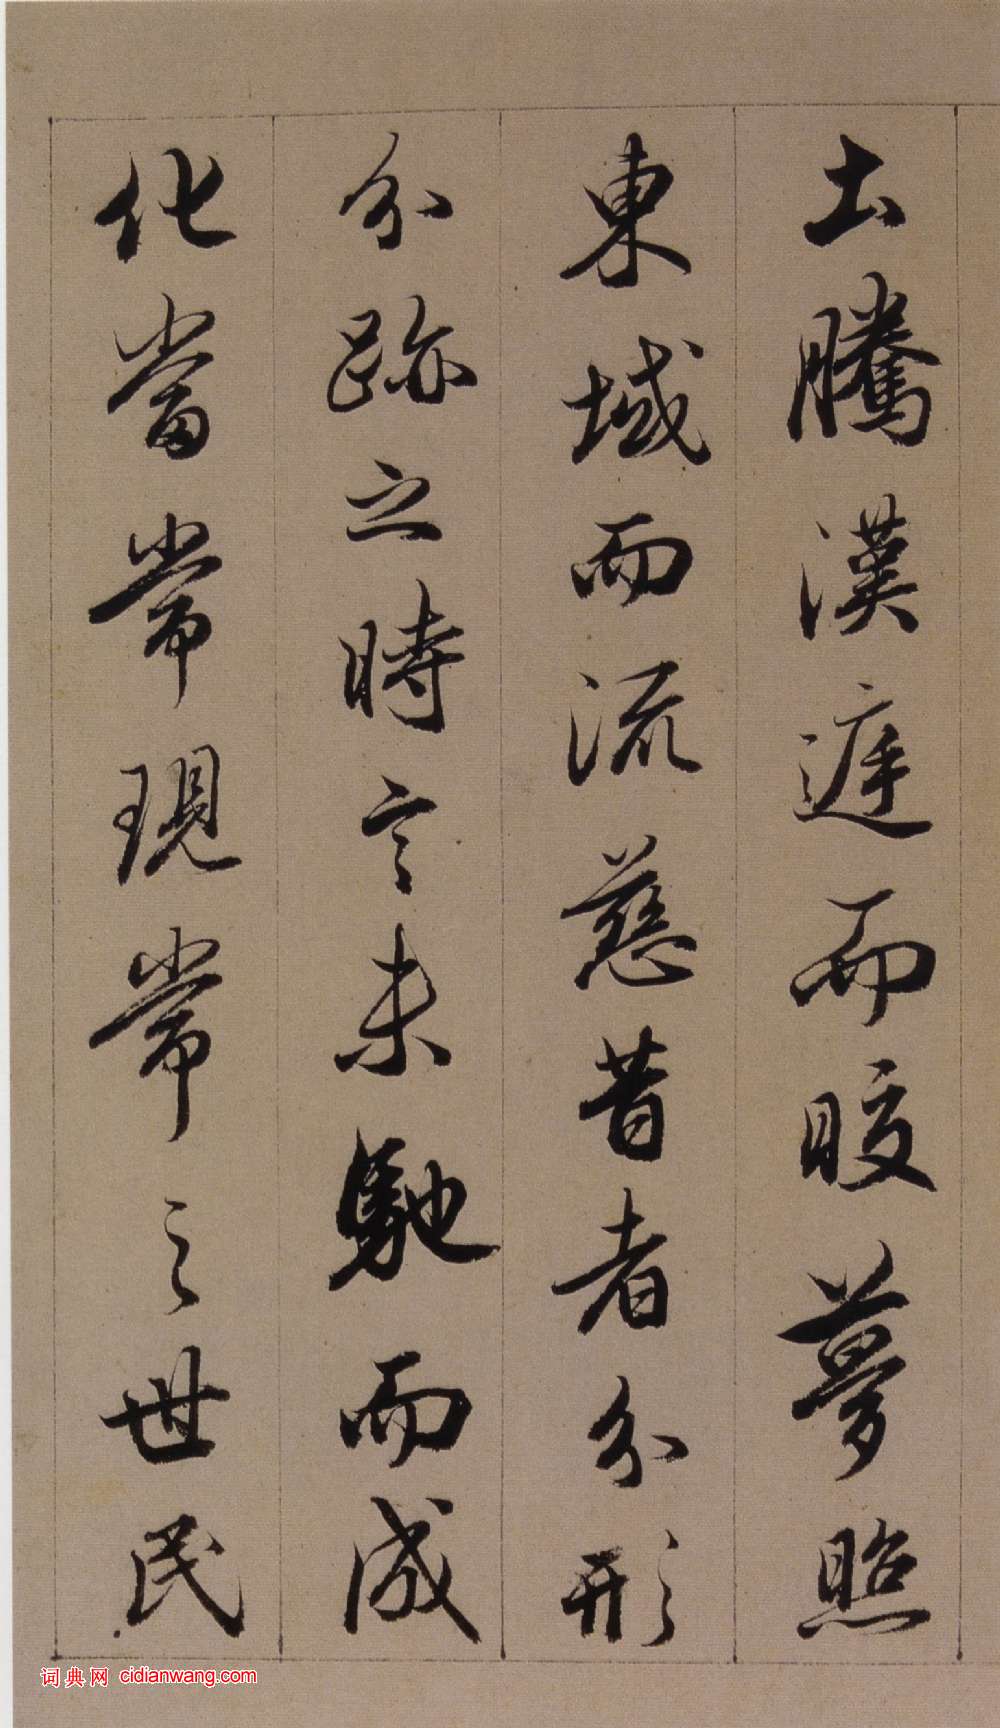 土騰漢庭而皎夢照
東域而流慈昔者分形
分跡之時言未馳而成
化當常現常之世民
词典网 cidianwang.com